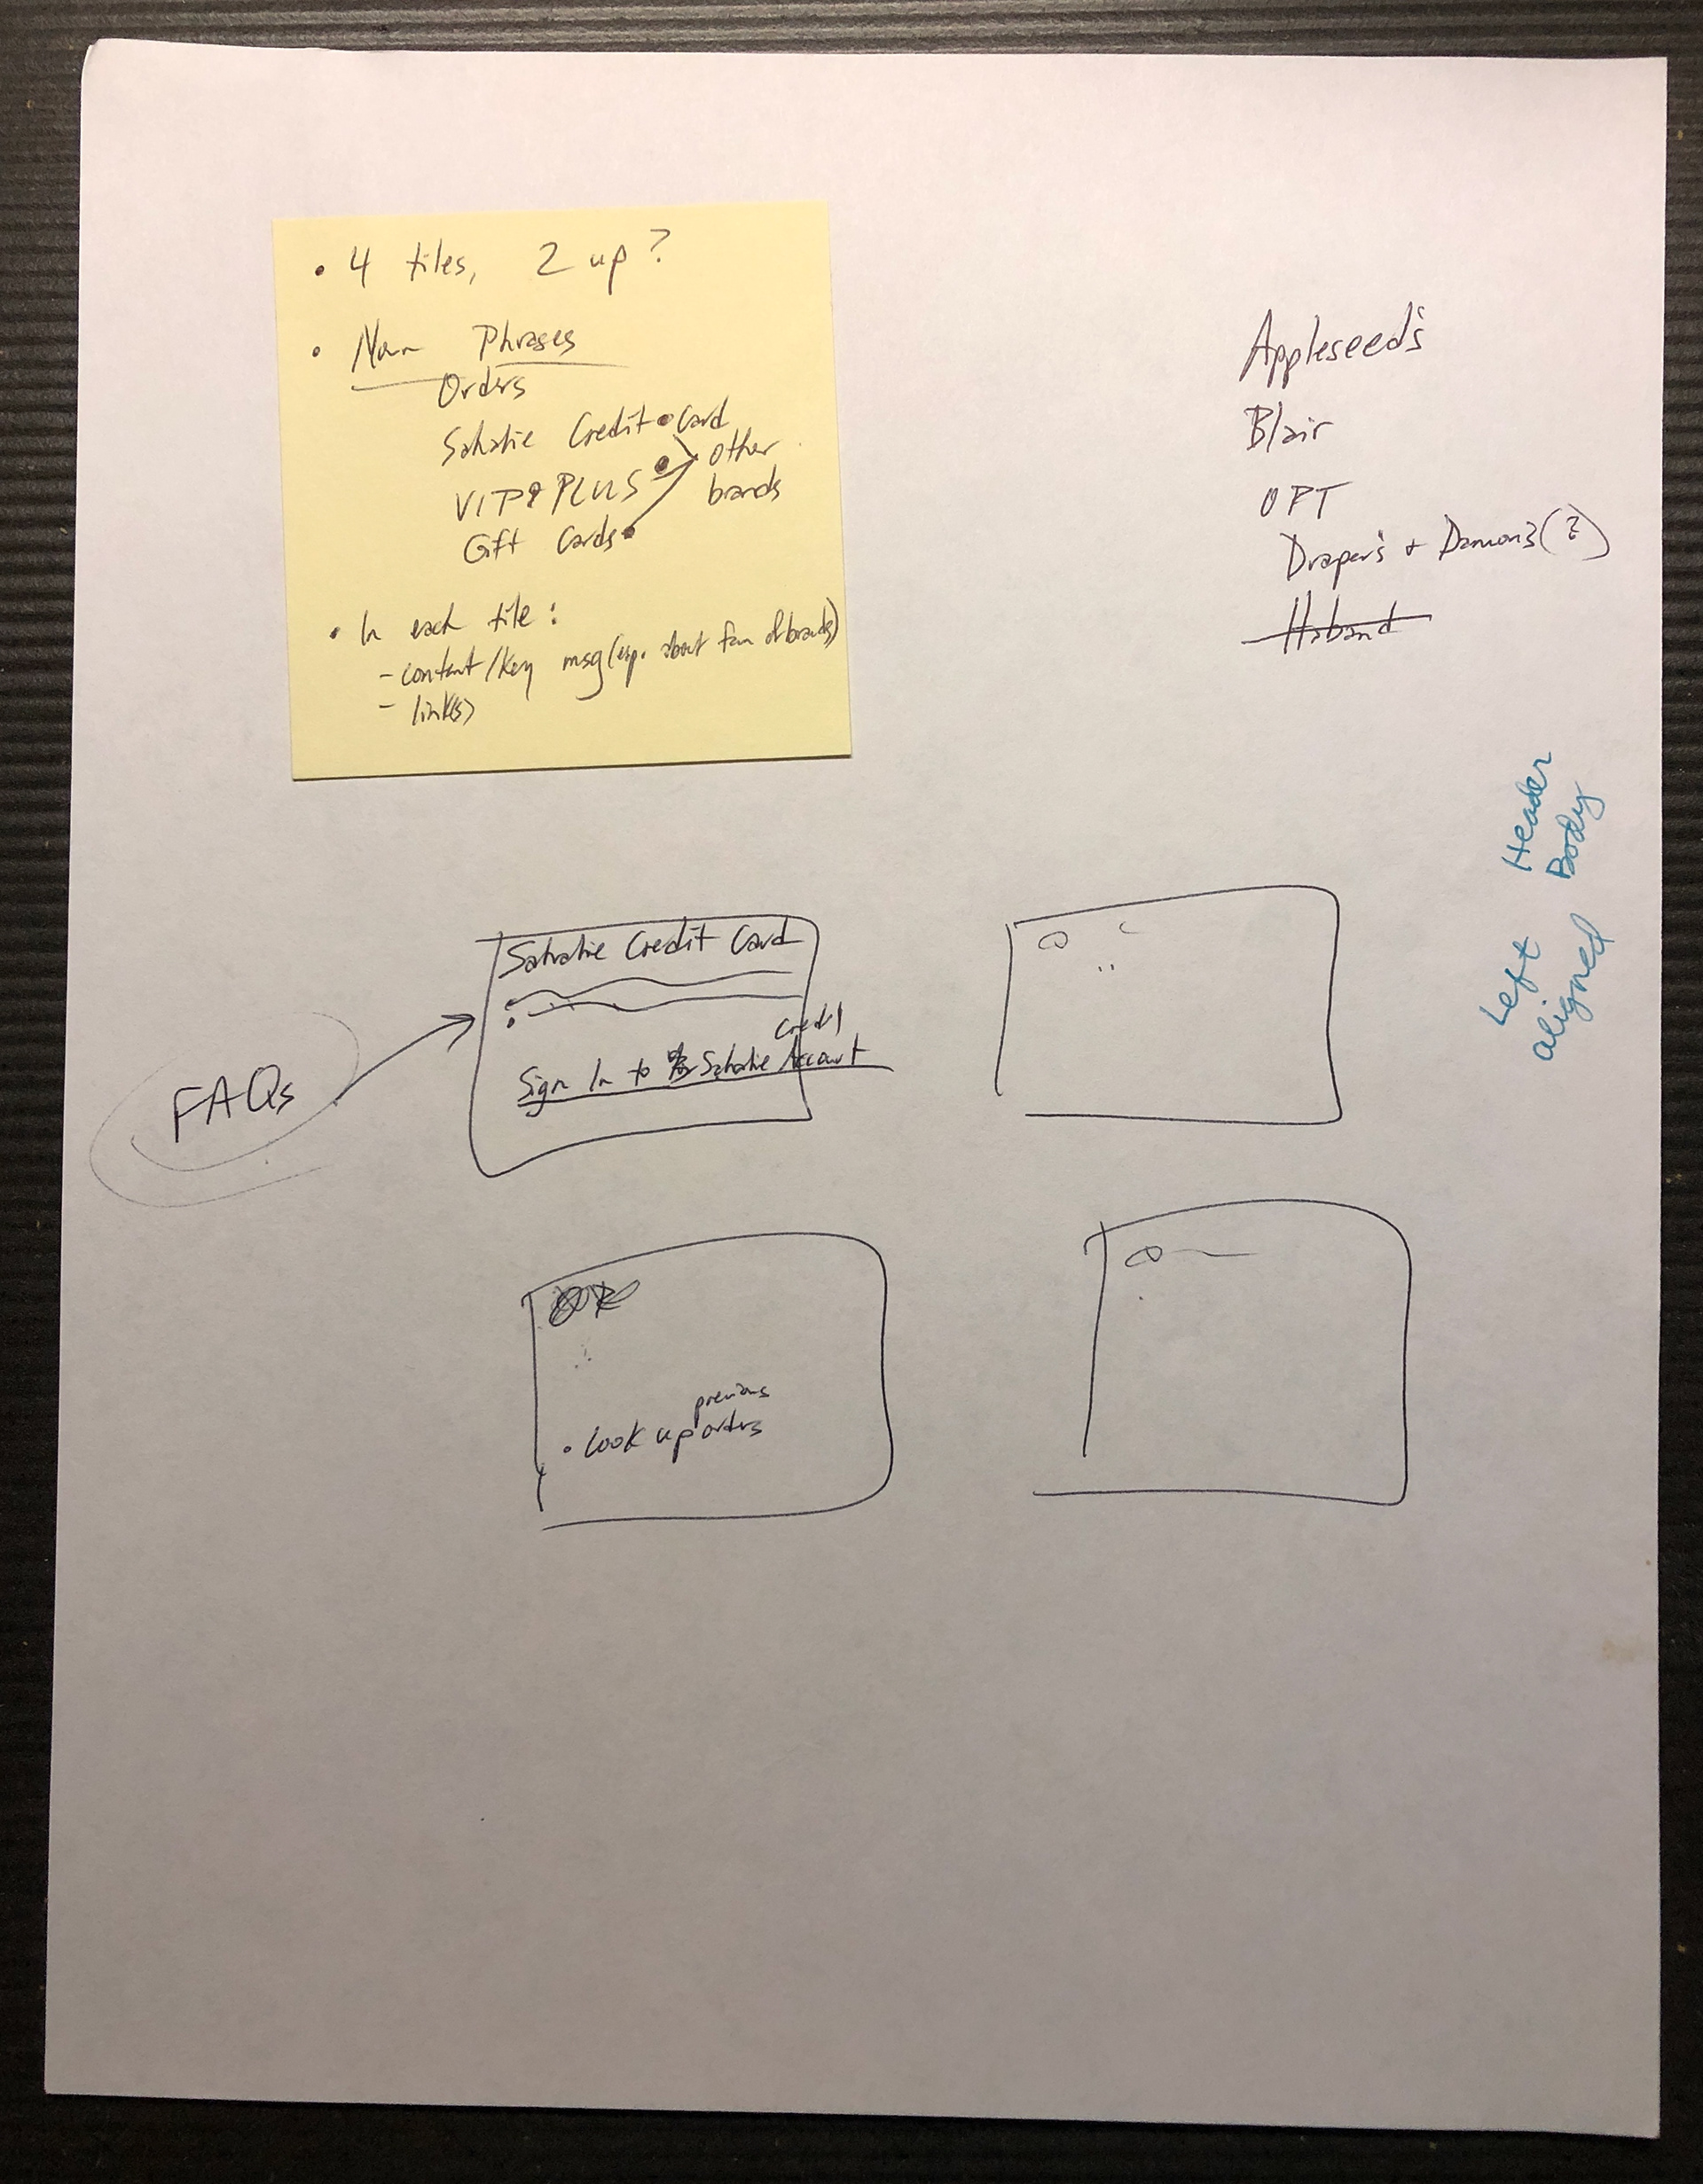 • 4 tiles, 2 up?
• Noun Phrases
Orders
Sahalie Credit Card
VIP PLUS
Gift Cards
other
brands
• In each tile:
- content/key msg (esp. about fam of brands)
- link(s)
Appleseed's
Blair
OPT
Draper's + Damon's (?)
Haband
Header
Body
Left
aligned
FAQs
Sahalie Credit Card
Credit
Sign In to Sahalie Account
previous
• Look up orders